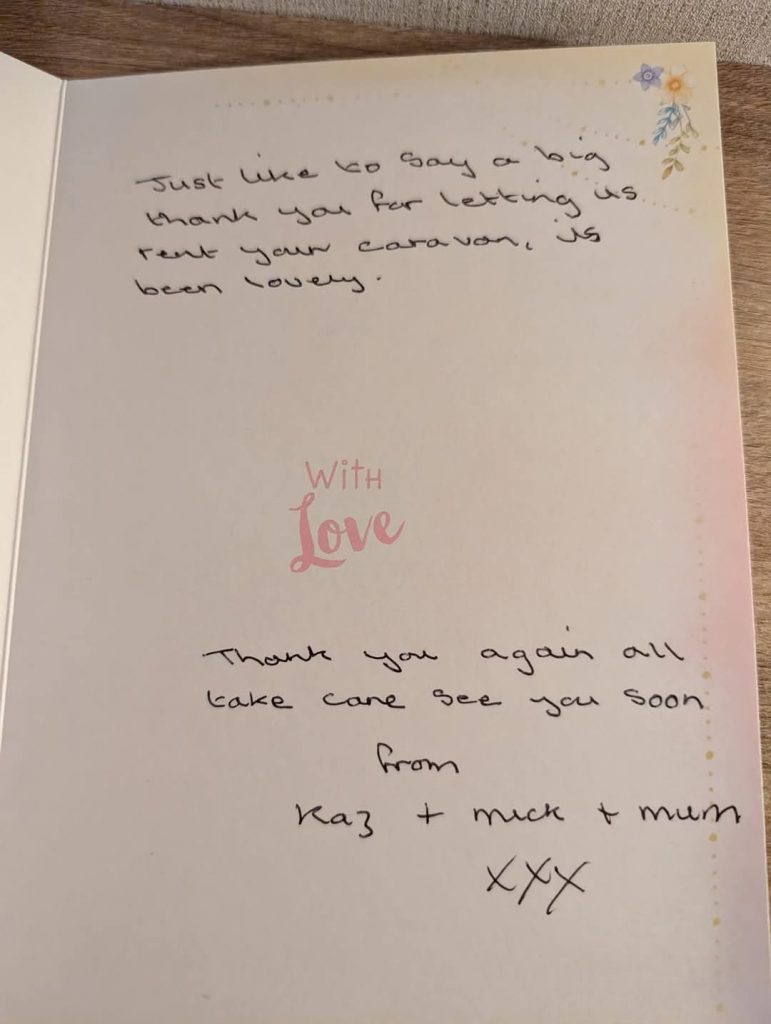 Just like to say a big
thank you for letting us
rent your caravan, its
been lovely.
WitH
Love
Thank you again all
take care see you soon
from
Kaz + mick + mum
xxx